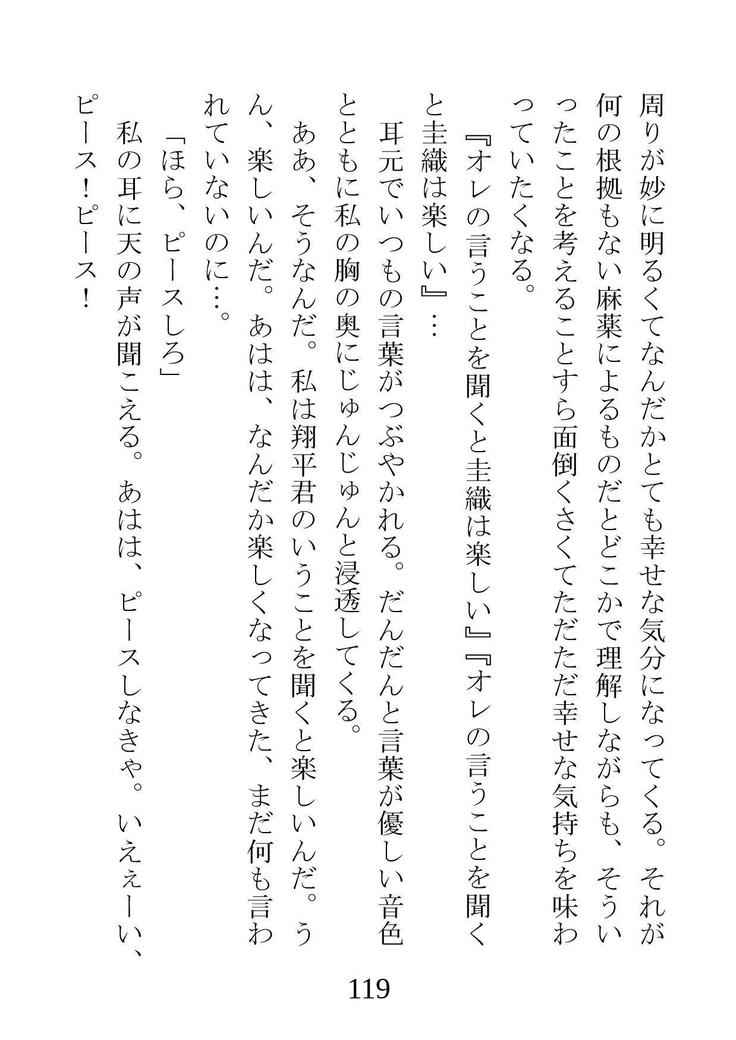 周りが妙に明るくてなんだかとても幸せな気分になってくる。それが
何の根拠もない麻薬によるものだとどこかで理解しながらも、そうい
ったことを考えることすら面倒くさくてただただ幸せな気持ちを味わ
っていたくなる。
『オレの言うことを聞くと圭織は楽しい』『オレの言うことを聞く
と圭織は楽しい』…
耳元でいつもの言葉がつぶやかれる。だんだんと言葉が優しい音色
とともに私の胸の奥にじゅんじゅんと浸透してくる。
ああ、そうなんだ。私は翔平君のいうことを聞くと楽しいんだ。う
ん、楽しいんだ。あはは、なんだか楽しくなってきた、まだ何も言わ
れていないのに…。
「ほら、ピースしろ」
私の耳に天の声が聞こえる。あはは、ピースしなきゃ。いえぇーい、
ピース！ピース！
119